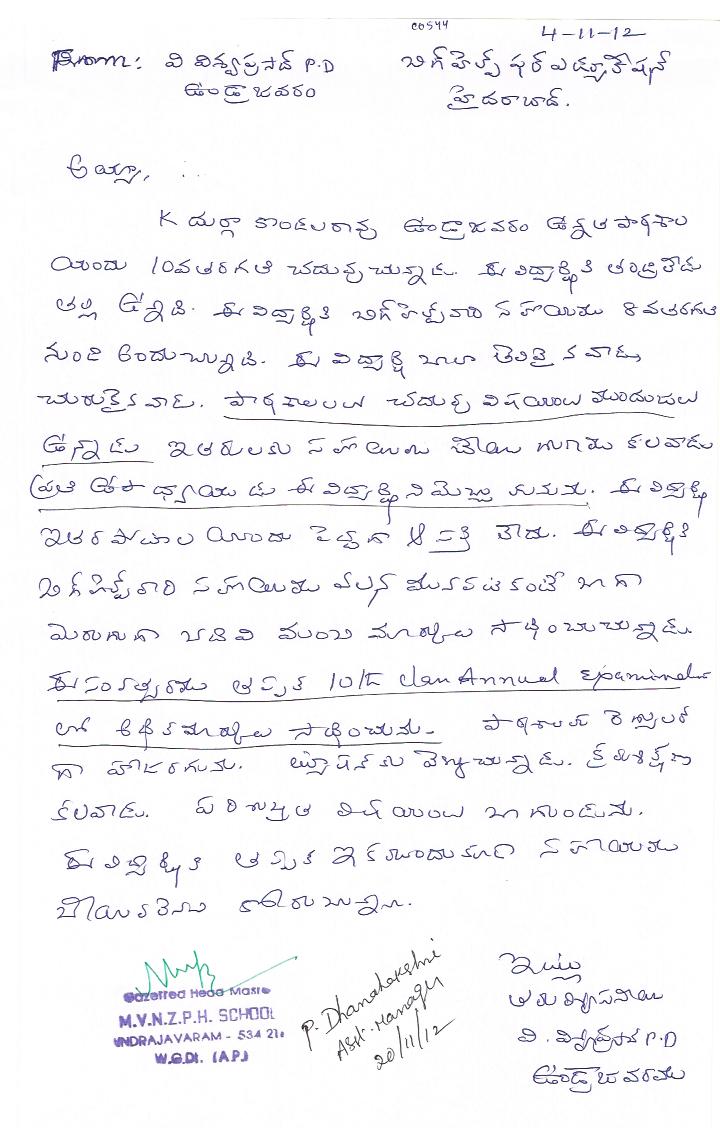 C0544
4-11-12
From: వి విశ్వప్రసాద్ P.D బిగ్ హెల్ప్ ఫర్ ఎడ్యూకేషన్
ఉండ్రాజవరం హైదరాబాద్.
అయ్యా,
K దుర్గా కొండలరావు ఉండ్రాజవరం ఉన్నత పాఠశాల
యందు 10వతరగతి చదువుచున్నాడు. ఈ విద్యార్థికి తండ్రిలేడు
తల్లి ఉన్నది. ఈ విద్యార్థికి బిగ్ హెల్ప్ వారి సహాయము 8వతరగతి
నుండి అందుచున్నది. ఈ విద్యార్థి బాగా తెలివైనవాడు,
చురుకైనవాడు. పాఠశాలలలో చదువు విషయంలో ముందుజలు
ఉన్నాడు ఇతరులకు సహాయం చేయు గుణము కలవాడు
ప్రతి ఉపాధ్యాయుడు ఈ విద్యార్థిని మెచ్చుకునును. ఈ విద్యార్థి
ఇతర విషయాల యందు పెద్దగా ఆసక్తి లేదు. ఈ విద్యార్థికి
బిగ్ హెల్ప్ వారి సహాయము వలన మునుపటికంటే బాగా
మెరుగుగా చదివి మంచి మార్కులు సాధించుచున్నాడు.
ఈ సంవత్సరము తప్పక 10th class Annual Examination
లో అధికమార్కులు సాధించును. పాఠశాలకు రెగ్యులర్
గా హాజరగును. ట్యూషన్ కు వెళ్ళుచున్నాడు. క్రమశిక్షణ
కలవాడు. పరిశుభ్రత విషయంలో బాగుండును.
ఈ విద్యార్థికి తప్పక ఇక ముందుకూడా సహాయము
చేయగలరని కోరుచున్నాను.
ఇట్లు
తమ విశ్వాసనీయ
వి. విశ్వప్రసాద్ P.D
ఉండ్రాజవరము
Gazetted Head Maste
M.V.N.Z.P.H. SCHOOL
UNDRAJAVARAM - 534 21
W.G.Dt. (A.P.)
P. Dhanalakshmi
Asst. Manager
20/11/12